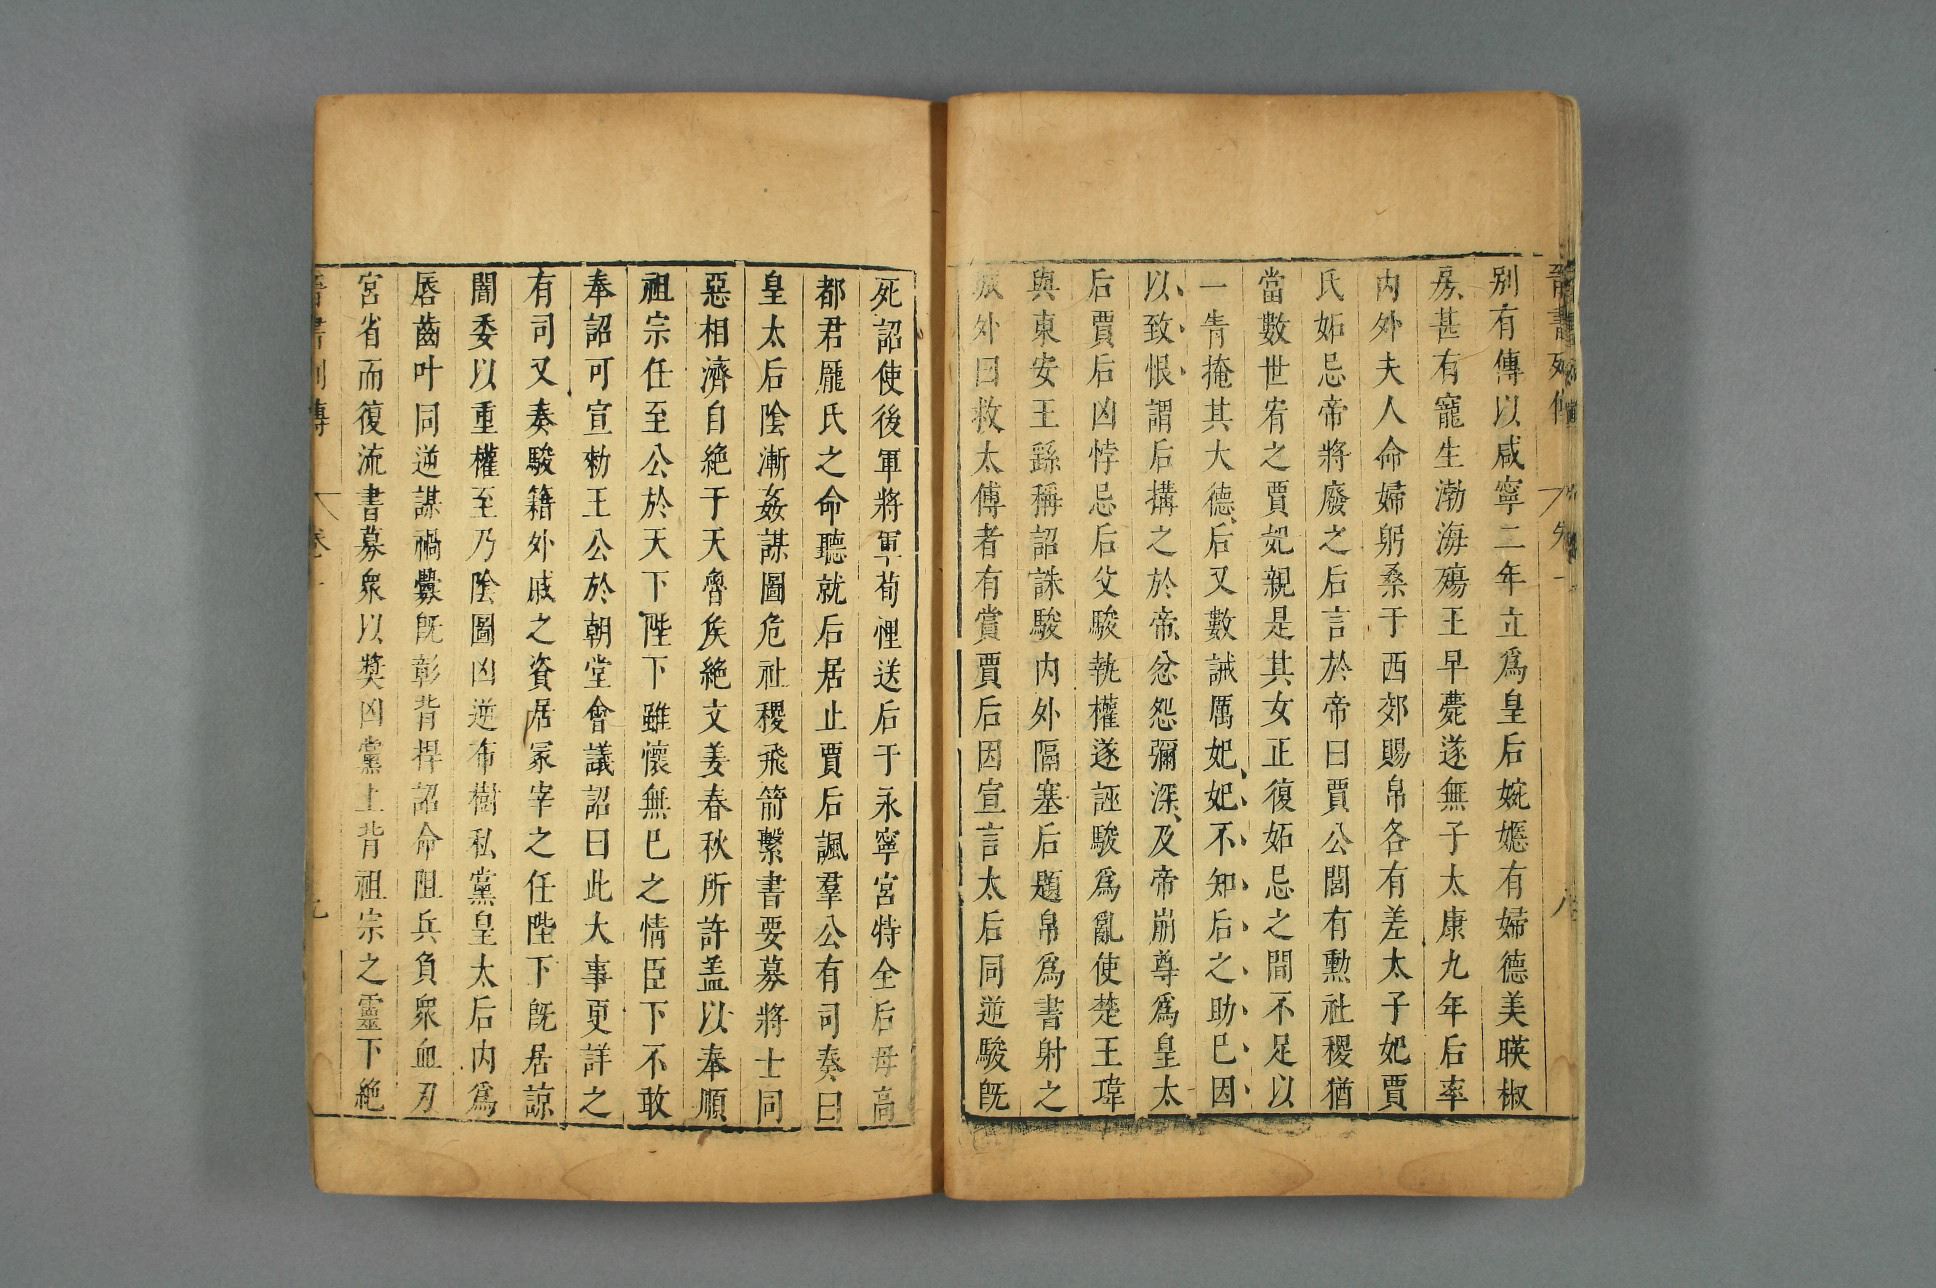 晉書列傳 卷一 八
別有傳以咸寧二年立爲皇后婉嫕有婦德美暎椒
房甚有寵生渤海殤王早薨遂無子太康九年后率
內外夫人命婦躬桑于西郊賜帛各有差太子妃賈
氏妬忌帝將廢之后言於帝曰賈公閭有勳社稷猶
當數世宥之賈妃親是其女正復妬忌之間不足以
一眚掩其大德后又數誡厲妃妃不知后之助巳因
以致恨謂后搆之於帝忿怨彌深及帝崩尊爲皇太
后賈后凶悖忌后父駿執權遂誣駿爲亂使楚王瑋
與東安王繇稱詔誅駿內外隔塞后題帛爲書射之
城外曰救太傅者有賞賈后因宣言太后同逆駿旣
死詔使後軍將軍荀悝送后于永寧宮特全后母高
都君龐氏之命聽就后居止賈后諷羣公有司奏曰
皇太后陰漸姦謀圖危社稷飛箭繫書要募將士同
惡相濟自絶于天魯矦絶文姜春秋所許盖以奉順
祖宗任至公於天下陛下雖懷無巳之情臣下不敢
奉詔可宣勑王公於朝堂會議詔曰此大事更詳之
有司又奏駿籍外戚之資居冢宰之任陛下旣居諒
闇委以重權至乃陰圖凶逆布樹私黨皇太后內爲
唇齒叶同逆謀禍釁旣彰背捍詔命阻兵負衆血刃
宮省而復流書募衆以獎凶黨上背祖宗之靈下絶
晉書列傳 卷一 九